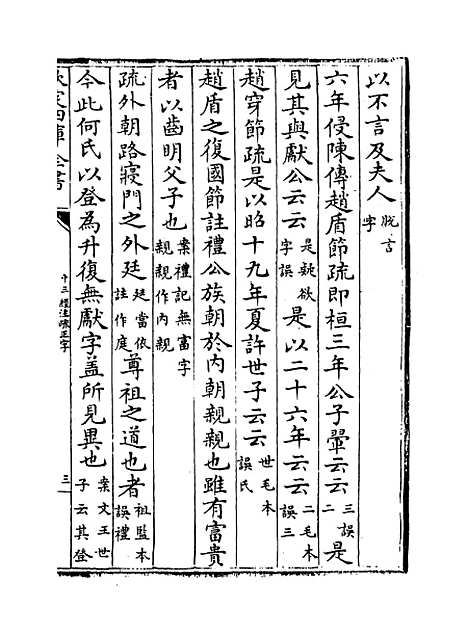 以不言及夫人脫言字
六年侵陳傳趙盾節疏即桓三年公子翬云云三誤二是
見其與獻公云云是疑欲字誤是以二十六年云云二毛本誤三
趙穿節疏是以昭十九年夏許世子云云世毛本誤氏
趙盾之復國節註禮公族朝於內朝親親也雖有富貴
者以齒明父子也案禮記無富字親親作內親
疏外朝路寢門之外廷廷當依註作庭尊祖之道也者祖監本誤禮
今此何氏以登為升復無獻字盖所見異也案文王世子云其登
四庫全書
十三經注疏正字
三